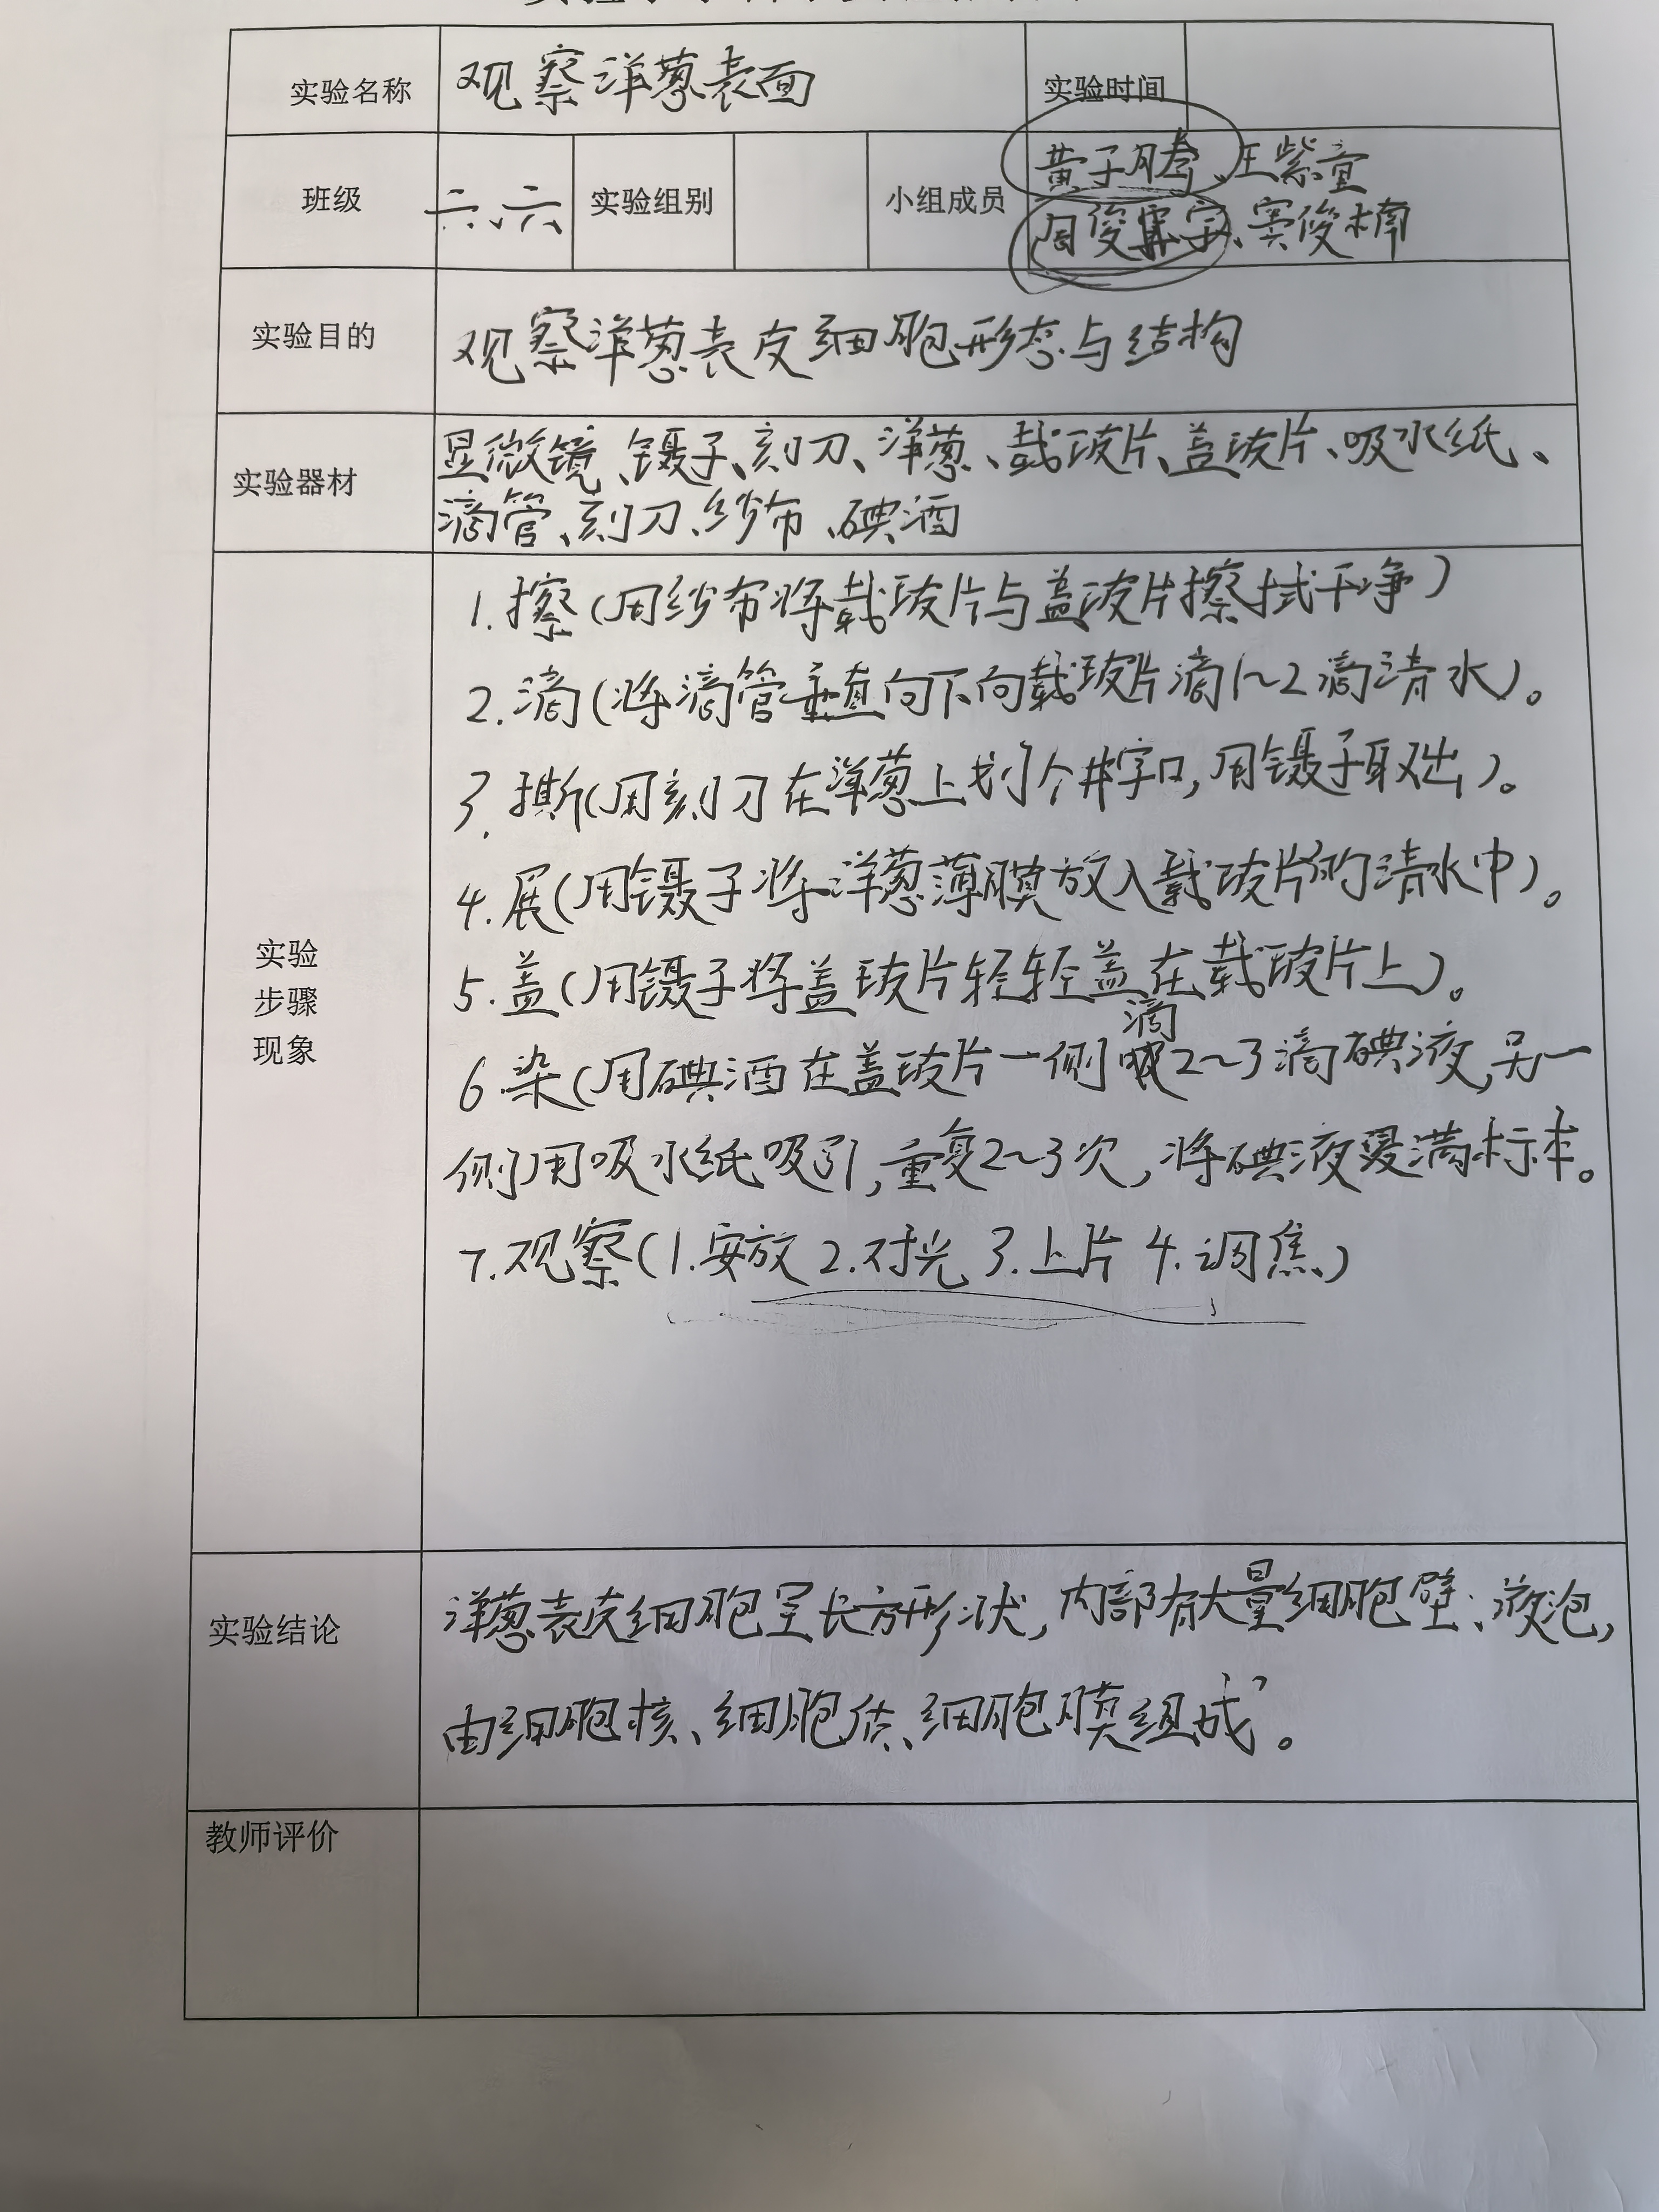 实验名称 观察洋葱表面 实验时间
班级 六、六 实验组别 小组成员 黄子腾、王紫童
周俊霖宇、窦俊楠
实验目的 观察洋葱表皮细胞形态与结构
实验器材 显微镜、镊子、刻刀、洋葱、载玻片、盖玻片、吸水纸、
滴管、刻刀、纱布、碘酒
实验
步骤
现象
1.擦(用纱布将载玻片与盖玻片擦拭干净)
2.滴(将滴管垂直向下向载玻片滴1~2滴清水)。
3.撕(用刻刀在洋葱上划个井字口,用镊子取出)。
4.展(用镊子将洋葱薄膜放入载玻片的清水中)。
5.盖(用镊子将盖玻片轻轻盖在载玻片上)。
6.染(用碘酒在盖玻片一侧滴2~3滴碘液,另一
侧用吸水纸吸引,重复2~3次,将碘液浸满标本。
7.观察(1.安放 2.对光 3.上片 4.调焦)
实验结论 洋葱表皮细胞呈长方形状,内部有大量细胞壁、液泡,
由细胞核、细胞质、细胞膜组成。
教师评价